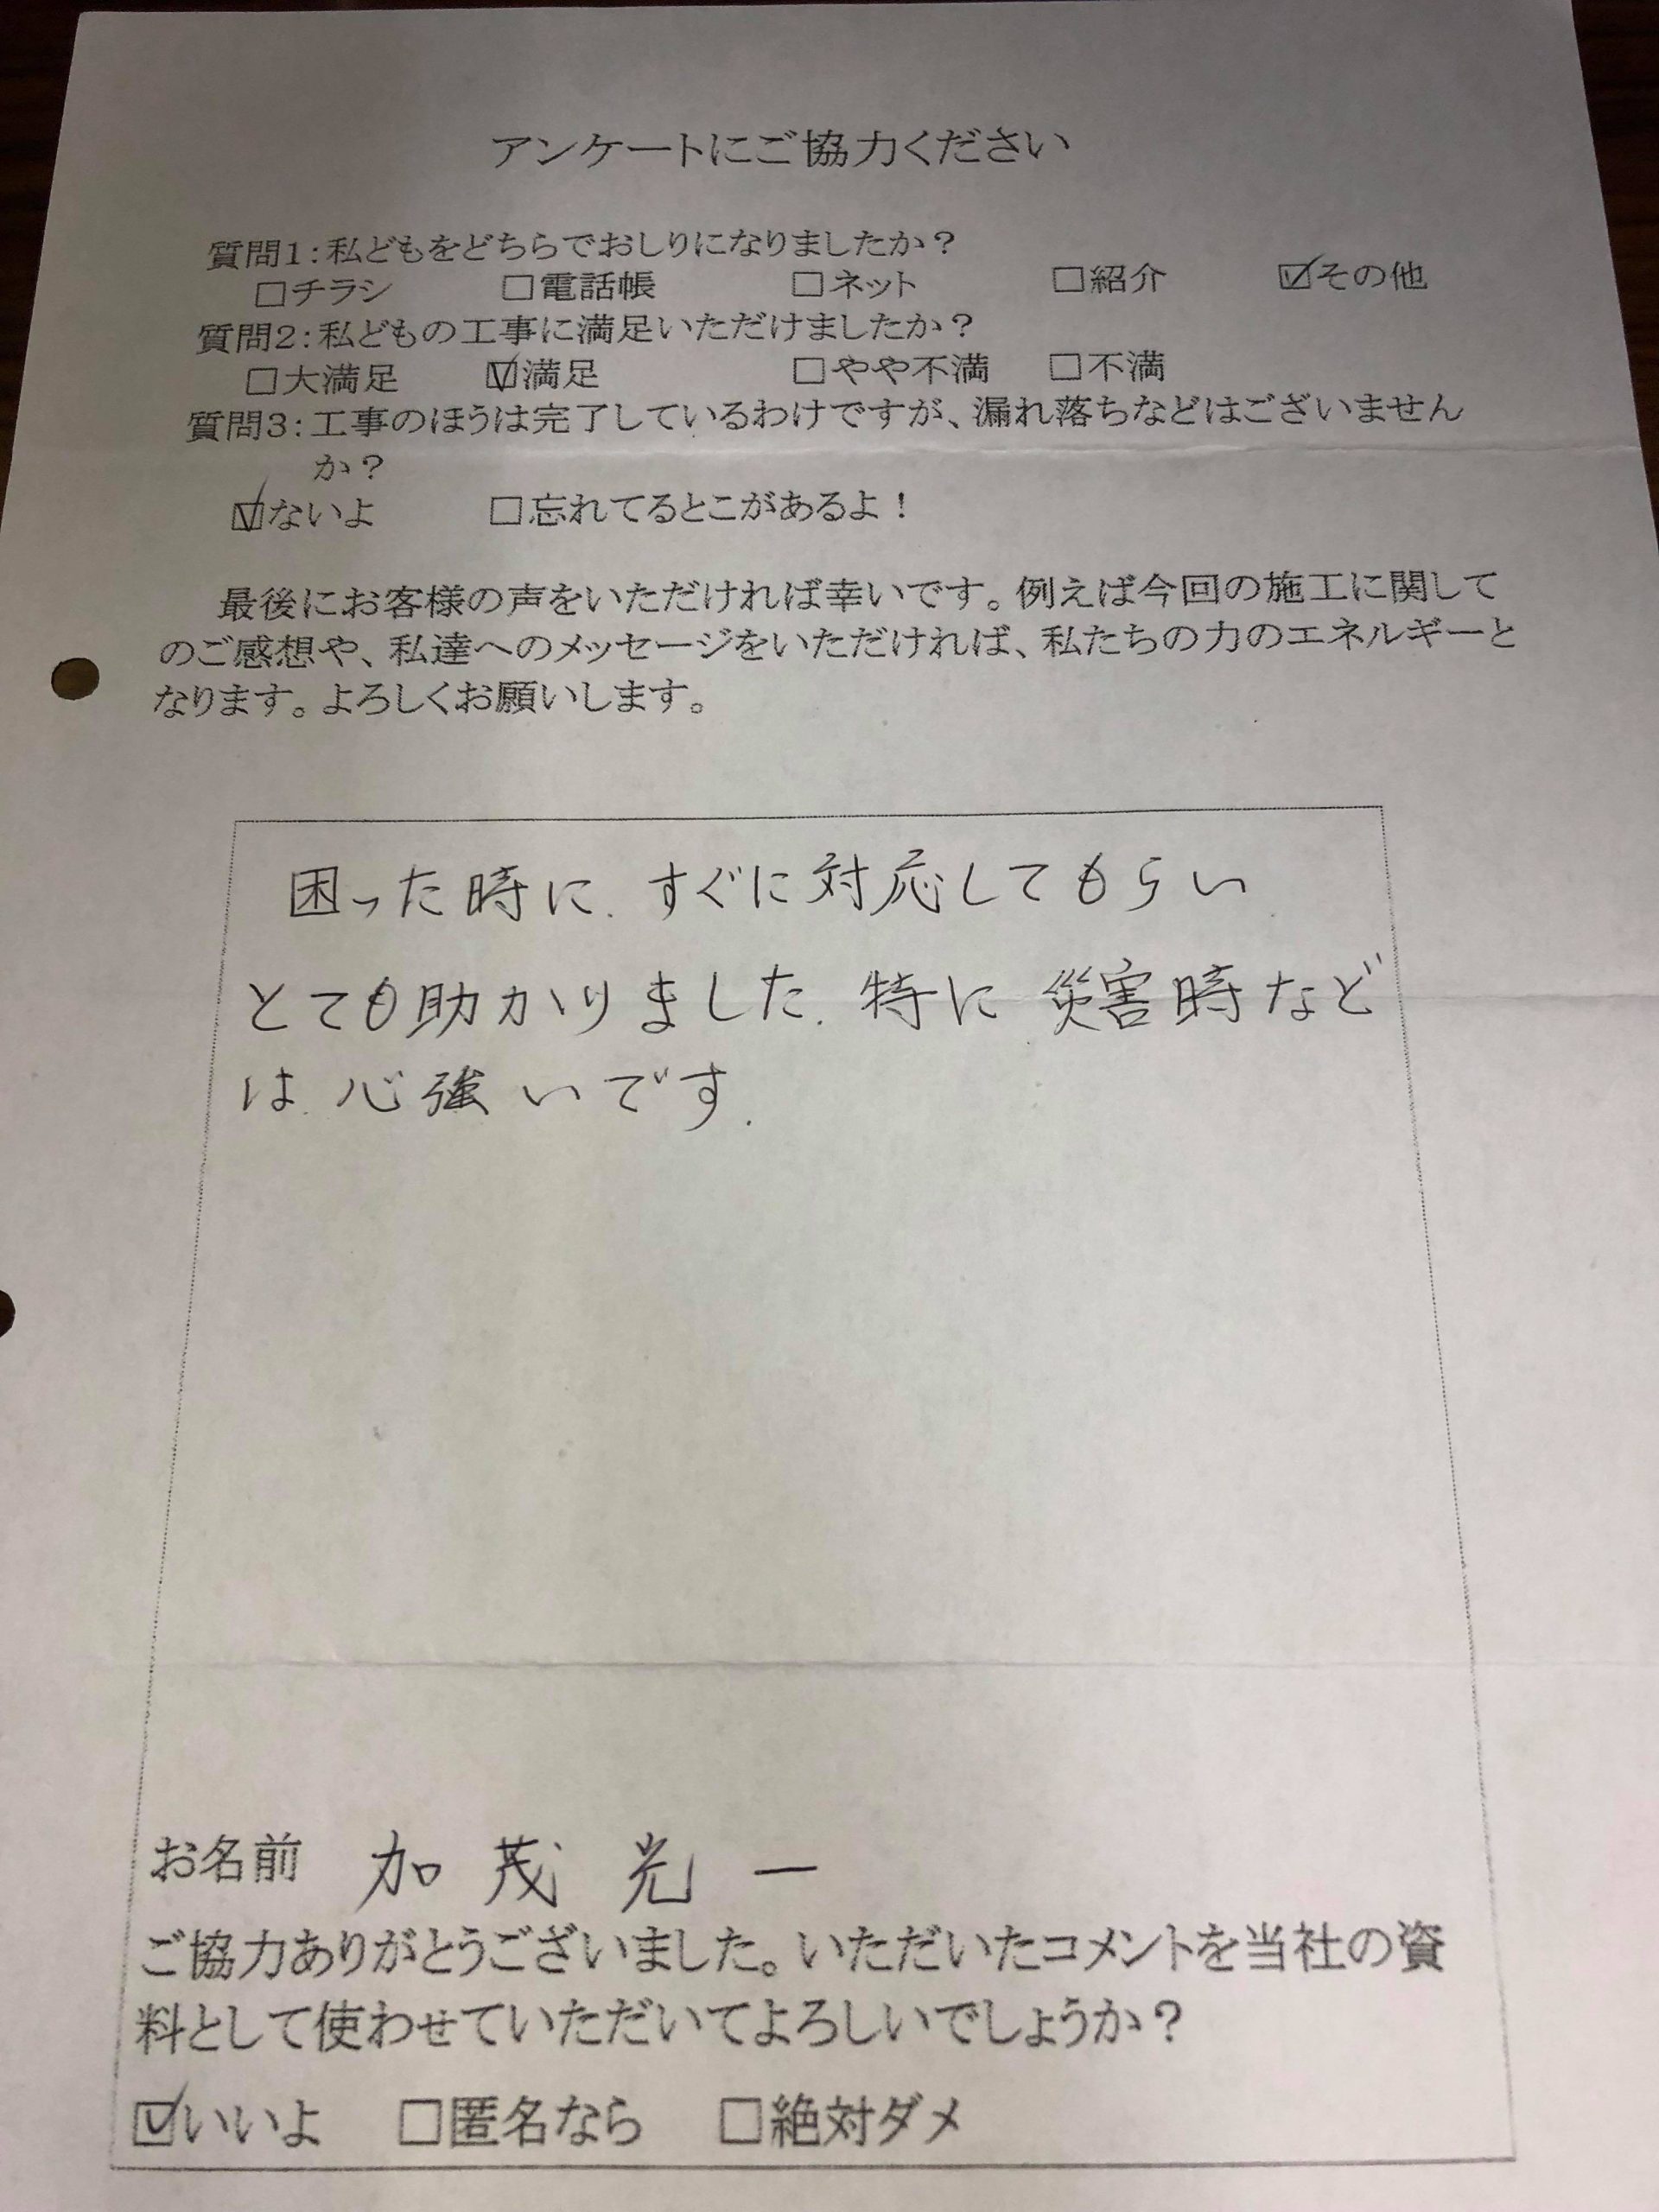 アンケートにご協力ください
質問1:私どもをどちらでおしりになりましたか？
□チラシ □電話帳 □ネット □紹介 ☑その他
質問2:私どもの工事に満足いただけましたか？
□大満足 ☑満足 □やや不満 □不満
質問3:工事のほうは完了しているわけですが、漏れ落ちなどはございません
か？
☑ないよ □忘れてるとこがあるよ！
最後にお客様の声をいただければ幸いです。例えば今回の施工に関して
のご感想や、私達へのメッセージをいただければ、私たちの力のエネルギーと
なります。よろしくお願いします。
困った時に、すぐに対応してもらい
とても助かりました。特に災害時など
は、心強いです。
お名前 加茂光一
ご協力ありがとうございました。いただいたコメントを当社の資
料として使わせていただいてよろしいでしょうか？
☑いいよ □匿名なら □絶対ダメ